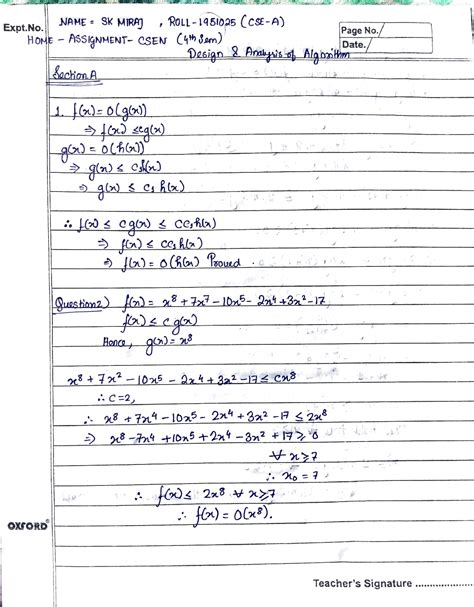 Expt.No.
NAME = SK MIRAJ , ROLL-1951025 (CSE-A)
Page No.
HOME - ASSIGNMENT- CSEN (4th Sem)
Date.
Design & Analysis of Algorithm
Section A
1. f(x) = O(g(x))
⇒ f(x) ≤cg(x)
g(x) = O(h(x))
⇒ g(x) ≤ c₁h(x)
⇒ g(x) ≤ c₁ h(x)
∴ f(x) ≤ cg(x) ≤ cc₁h(x)
⇒ f(x) ≤ cc₁h(x)
⇒ f(x) = O(h(x)) Proved .
Question2) f(x) = x⁸ + 7x⁷ - 10x⁵ - 2x⁴ +3x² -17
f(x) ≤ c g(x)
Hence, g(x) = x⁸
x⁸ + 7x² - 10x⁵ - 2x⁴ + 3x² - 17 ≤ cx⁸
∴ C=2,
∴ x⁸ + 7x⁴ - 10x⁵ - 2x⁴ + 3x² - 17 ≤ 2x⁸
⇒ x⁸ - 7x⁴ + 10x⁵ + 2x⁴ - 3x² + 17 ≥ 0
∀ x ≥ 7
∴ x₀ = 7 .
∴ f(x) ≤ 2x⁸ ∀ x ≥ 7
∴ f(x) = O(x⁸).
OXFORD®
Teacher's Signature